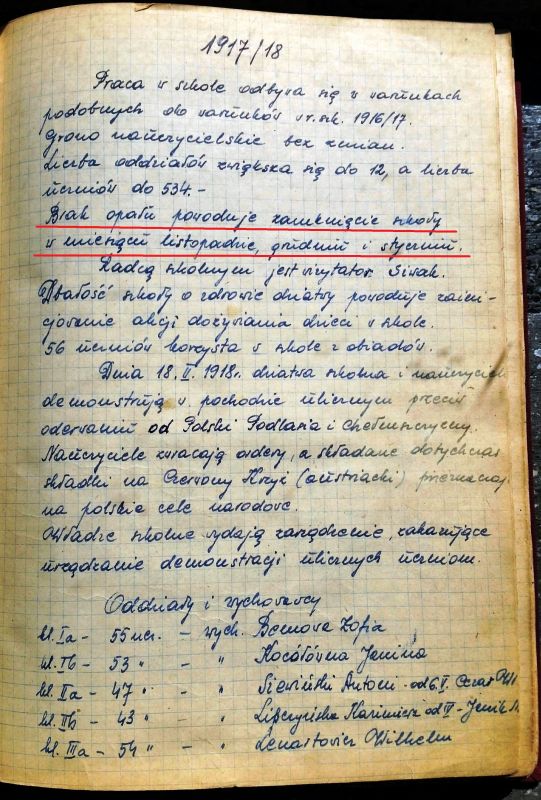 1917/18
Praca w szkole odbywa się w warunkach
podobnych do warunków w r. szk. 1916/17.
Grono nauczycielskie bez zmian.
Liczba oddziałów zwiększa się do 12, a liczba
uczniów do 534.-
Brak opału powoduje zamknięcie szkoły
w miesiącu listopadzie, grudniu i styczniu.
Radcą szkolnym jest wizytator Siwak.
Dbałość szkoły o zdrowie dziatwy powoduje zaini-
cjowanie akcji dożywiania dzieci w szkole.
56 uczniów korzysta w szkole z obiadów.
Dnia 18. II. 1918 r. dziatwa szkolna i nauczyciele
demonstrują w pochodzie ulicznym przeciw
oderwaniu od Polski Podlasia i Chełmszczyzny.
Nauczyciele zwracają ordery, a składane dotychczas
składki na Czerwony Krzyż (austriacki) przeznaczają
na polskie cele narodowe.
Władze szkolne wydają zarządzenie, zakazujące
urządzanie demonstracji ulicznych uczniom.
Oddziały i wychowawcy
kl. Ia - 55 ucz. - wych. Zofia
kl. Ib - 53 " - " Janina
kl. IIa - 47 " - " Antoni - od 6.V.
kl. IIb - 43 " - " Kazimierz od V -
kl. IIIa - 54 " - " Lenartowicz Wilhelm